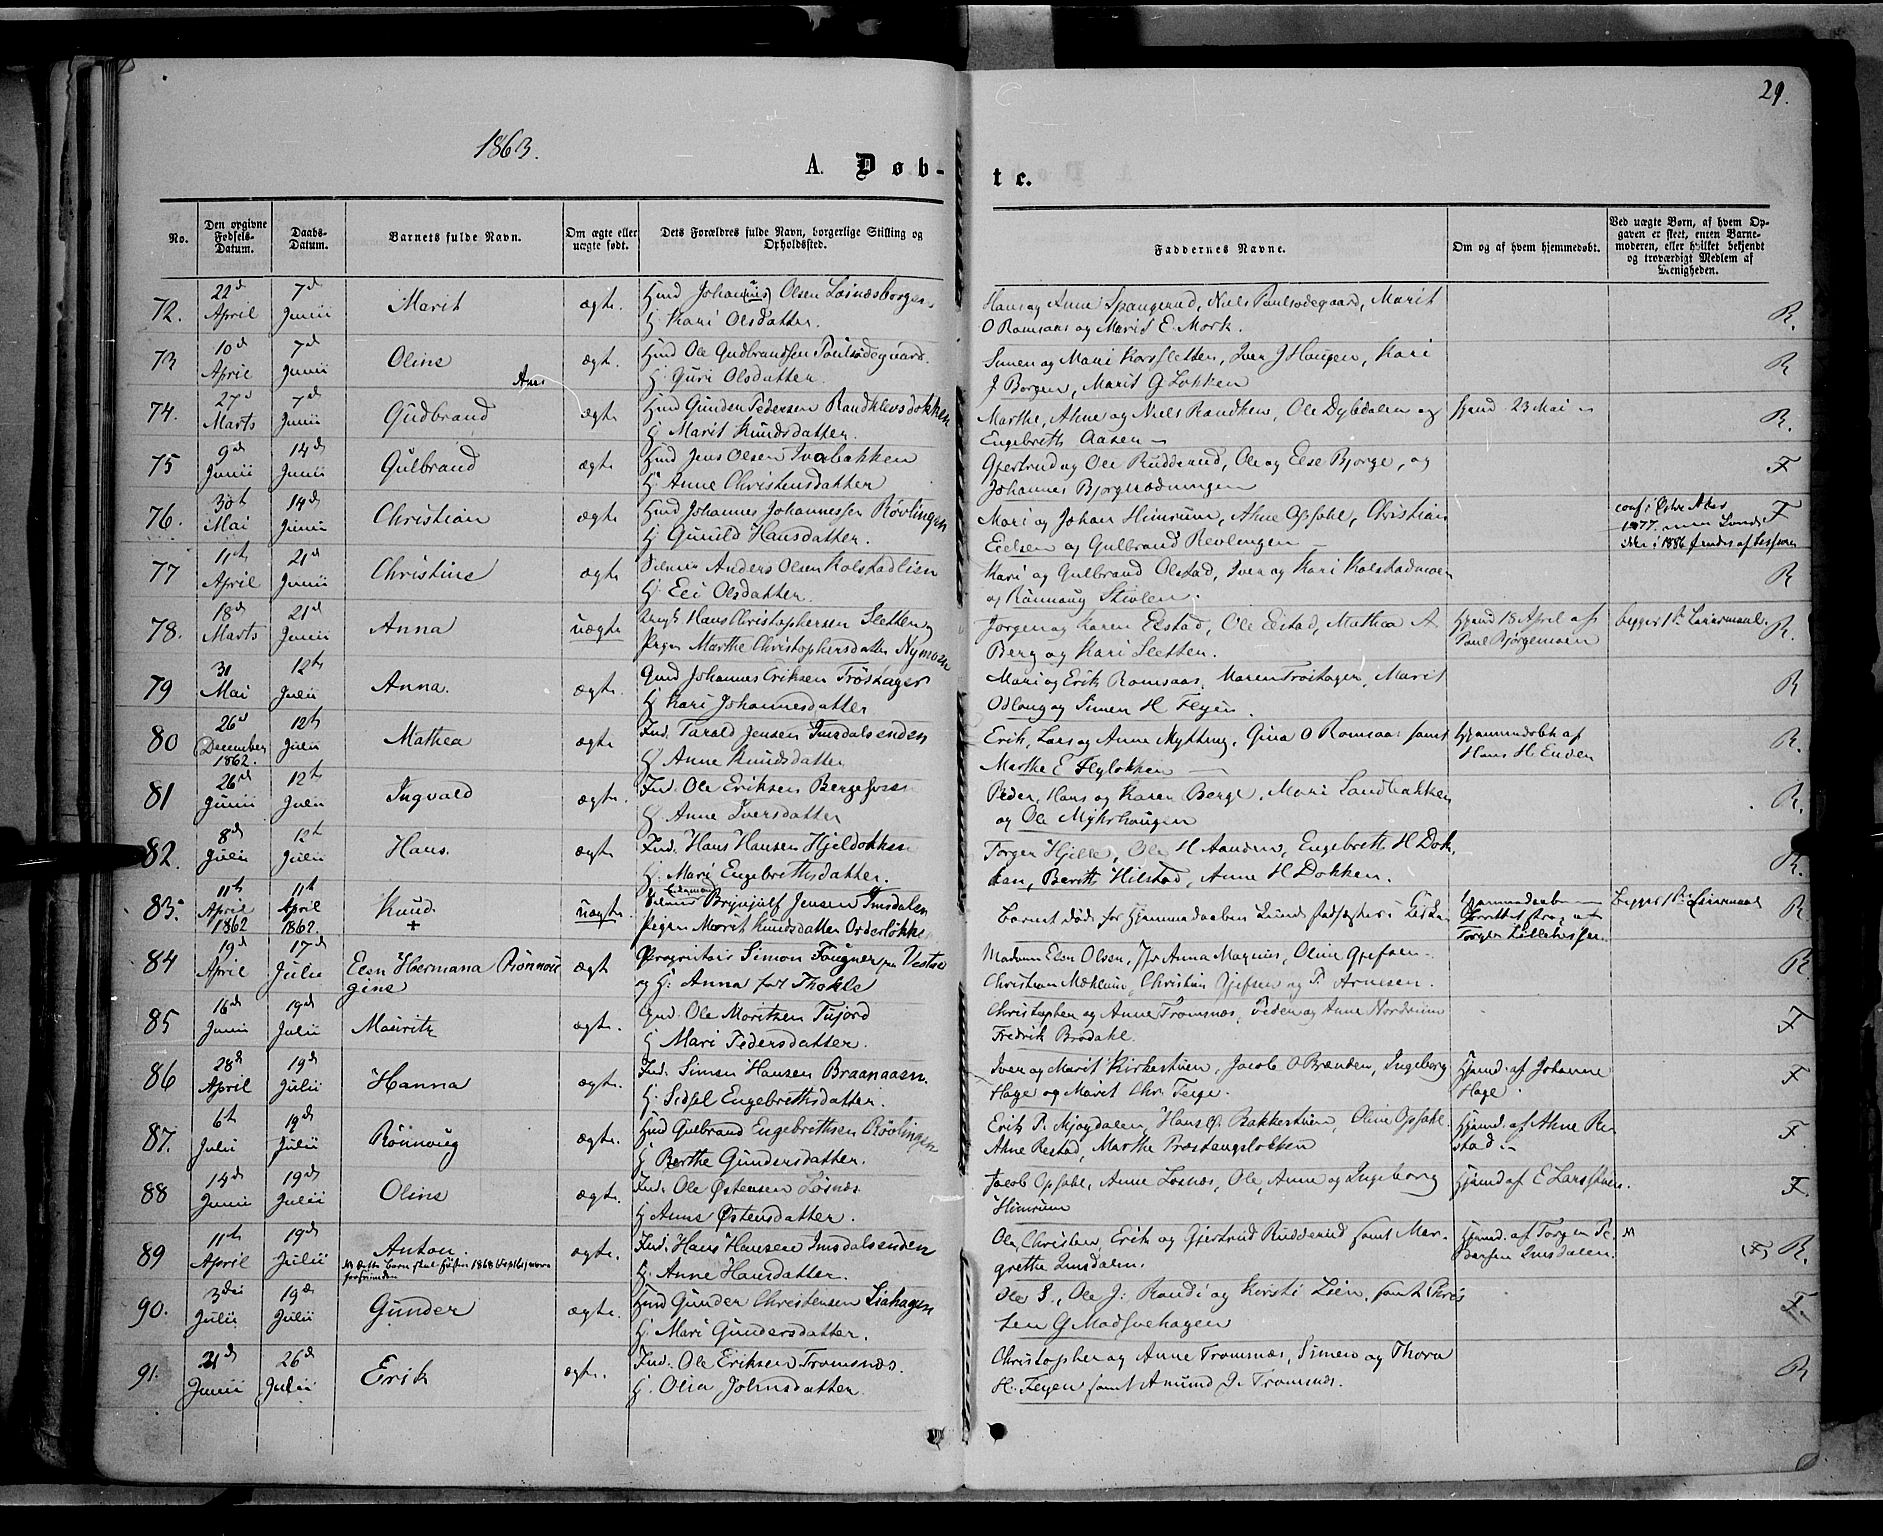 29.
1863.
A. Døb-
te.
No.
Den opgivne Fødsels-Datum.
Daabs-Datum.
Barnets fulde Navn.
Om ægte eller uægte født.
Dets Forældres fulde Navn, borgerlige Stilling og Opholdssted.
Faddernes Navne.
Om og af hvem hjemmedøbt.
Ved uægte Børn, af hvem Opgaven er skeet, enten Barnemoderen, eller hvilket bekjendt og troværdigt Medlem af Menigheden.
72. 22d April 7d Junii Marit ægte. Hmd Johannes Olsen Losnæsborgen
H. Kari Olsdatter.
Hans og Anne Spangerud, Niels Paulsødegaard, Marit
O Romsaas og Marit E. Mork. R.
73 10d April 7d Junii Oline ægt. Hmd Ole Gudbrandsen Paulsødegaard.
H. Guri Olsdatter.
Simen og Mari Korssletten, Iver J Haugen, Kari
J Borgen, Marit G Løkken R
74. 27d Marts 7d Junii Gudbrand ægte Hmd Gunder Pedersen Randklevsdokken
H. Marit Knudsdatter.
Marthe, Ahne og Niels Randklev, Ole Dybdalen og
Engebreth Aasen Hjemd 23 Mai R.
75 9d Junii 14d Junii Gulbrand ægte Hmd Jens Olsen
H. Anne Christensdatter
Gjertrud og Ole Rudderud, Ole og Else Bjørge, og
Johannes F
76. 30t Mai 14d Junii Christian ægte Hmd Johannes Johannessen Røvlingen
H. Gunild Hansdatter.
Mari og Johan Himrum, Ahne Opsahl, Christian
Eielsen og Gulbrand Revlingen
conf. i Østre Aker
1877. F
77 11th April 21d Junii Christine ægte Anders Olsen Kolstadlien
H. Eli Olsdatter.
Kari og Gulbrand Olstad, Iver og Kari Kolstadmoen
og Rønnaug R
78. 18d Marts 21d Junii Anna uægte Ungk. Hans Christophersen Sletten og
Pigen Marthe Christophersdatter Nymoen
Jørgen og Karen Elstad, Ole Elstad, Mathea A
Berg og Kari Sletten.
Hjemd 18 April af
Paul Bjørgemoen begges 1ste Leiermaal. R
79 31 Mai 12th Julii Anna. ægte. Gmd Johannes Eriksen Trøshager
H. Kari Johannesdatter
Mari og Erik Romsaas, Maren Trøshagen, Marit
Odlaug og Simen H Flyen. R
80 26d December 1862. 12th Julii Mathea ægte Ind. Tarald Jensen Imsdalsenden
H. Anne Knudsdatter
Erik, Lars og Anne Mytting, Gina O Romsaas samt
Marthe E Flyløkken
Hjemmedøbt af
Hans H. Enden R.
81 26d Junii 12th Julii Ingvald ægte. Ind. Ole Eriksen
H. Anne Iversdatter
Peder, Hans og Karen Berge, Mari Sandbakken
og Ole Myhrhaugen R.
82. 8d Julii 12th Julii Hans. ægte Ind. Hans Hansen Hjeldokken
H. Mari Engebrethsdatter.
Torger Hjelle, Ole H Aanden, Engebreth H Dok-
ken, Bereth Hilstad, Anne H Dokken. R.
83. 11th April 1862 11th April 1862. Knud + uægte. Brynjulf Jensen Imsdalen
Pigen Marit Knudsdatter
Barnet døde før Hjemmedaaben
Hjemmedaaben
forrettet strax af
Torger begges 1ste Leiermaal R
84 19d April 17d Julii Elen Hermana Rønnov
gine ægt Proprietair Simon Fougner paa
og H: Anna født Thokle
Madame Elen Olsen, Anna Magnus, Oline Gjefsen
Christian Mæhlum, Christian Gjefsen og P. Arnesen. R
85 16d Junii 19d Julii Mauritz ægte. Gmd Ole Moritzen Tujord
H Mari Pedersdatter.
Christopher og Anne Tromsnæs, Peder og Anne Nordrum
Fredrik Brodahl. F
86 28d April 19d Julii Hanna ægte. Ind. Simen Hansen Braanaasen.
H. Sidsel Engebrethsdatter.
Iver og Marit Kirkestuen, Jacob O Brænden, Ingeborg
Hage og Marit Chr.
Hjemd. af Johanne
Hage. F
87. 6th Julii 19d Julii Rønnoug ægte. Hmd Gulbrand Engebrethsen Røvlingen
H Berthe Gundersdatter.
Erik P. Mjøgdalen, Hans Bakkestuen, Oline Opsahl
Ahne Restad, Marthe Prestangsløkken
Hjemd. af Ahne Re
stad F
88 14d Junii 19d Julii Oline ægte. Ind. Ole Østensen Losnæs
H Anne Østensdatter.
Jacob Opsahl, Anne Losnæs, Ole, Anne og Ingeborg
Himrum
Hjemd af E Larsstuen. F.
89 11th April 19d Julii Anton.
ægte. Ind. Hans Hansen Imsdalsenden
H. Anne Hansdatter.
Ole, Christen, Erik og Gjertrud Rudderud samt Mar-
grethe Imsdalen.
Hjemd. af Torger
Imsdalen. (F) R.
90. 3die Julii 19de Julii Gunder ægte. Hmd Gunder Christensen Liahagen
H. Mari Gundersdatter.
Ole S., Ole J: Randi og Kirsti Lien, samt Chris
ten G Madsuehagen F.
91. 21d Junii 26d Julii Erik ægte. Ind. Ole Eriksen Tromsnæs.
H. Olia Johnsdatter.
Christopher og Anne Tromsnæs, Simen og Thora
H. Flyen samt Amund J. Tromsnæs. R